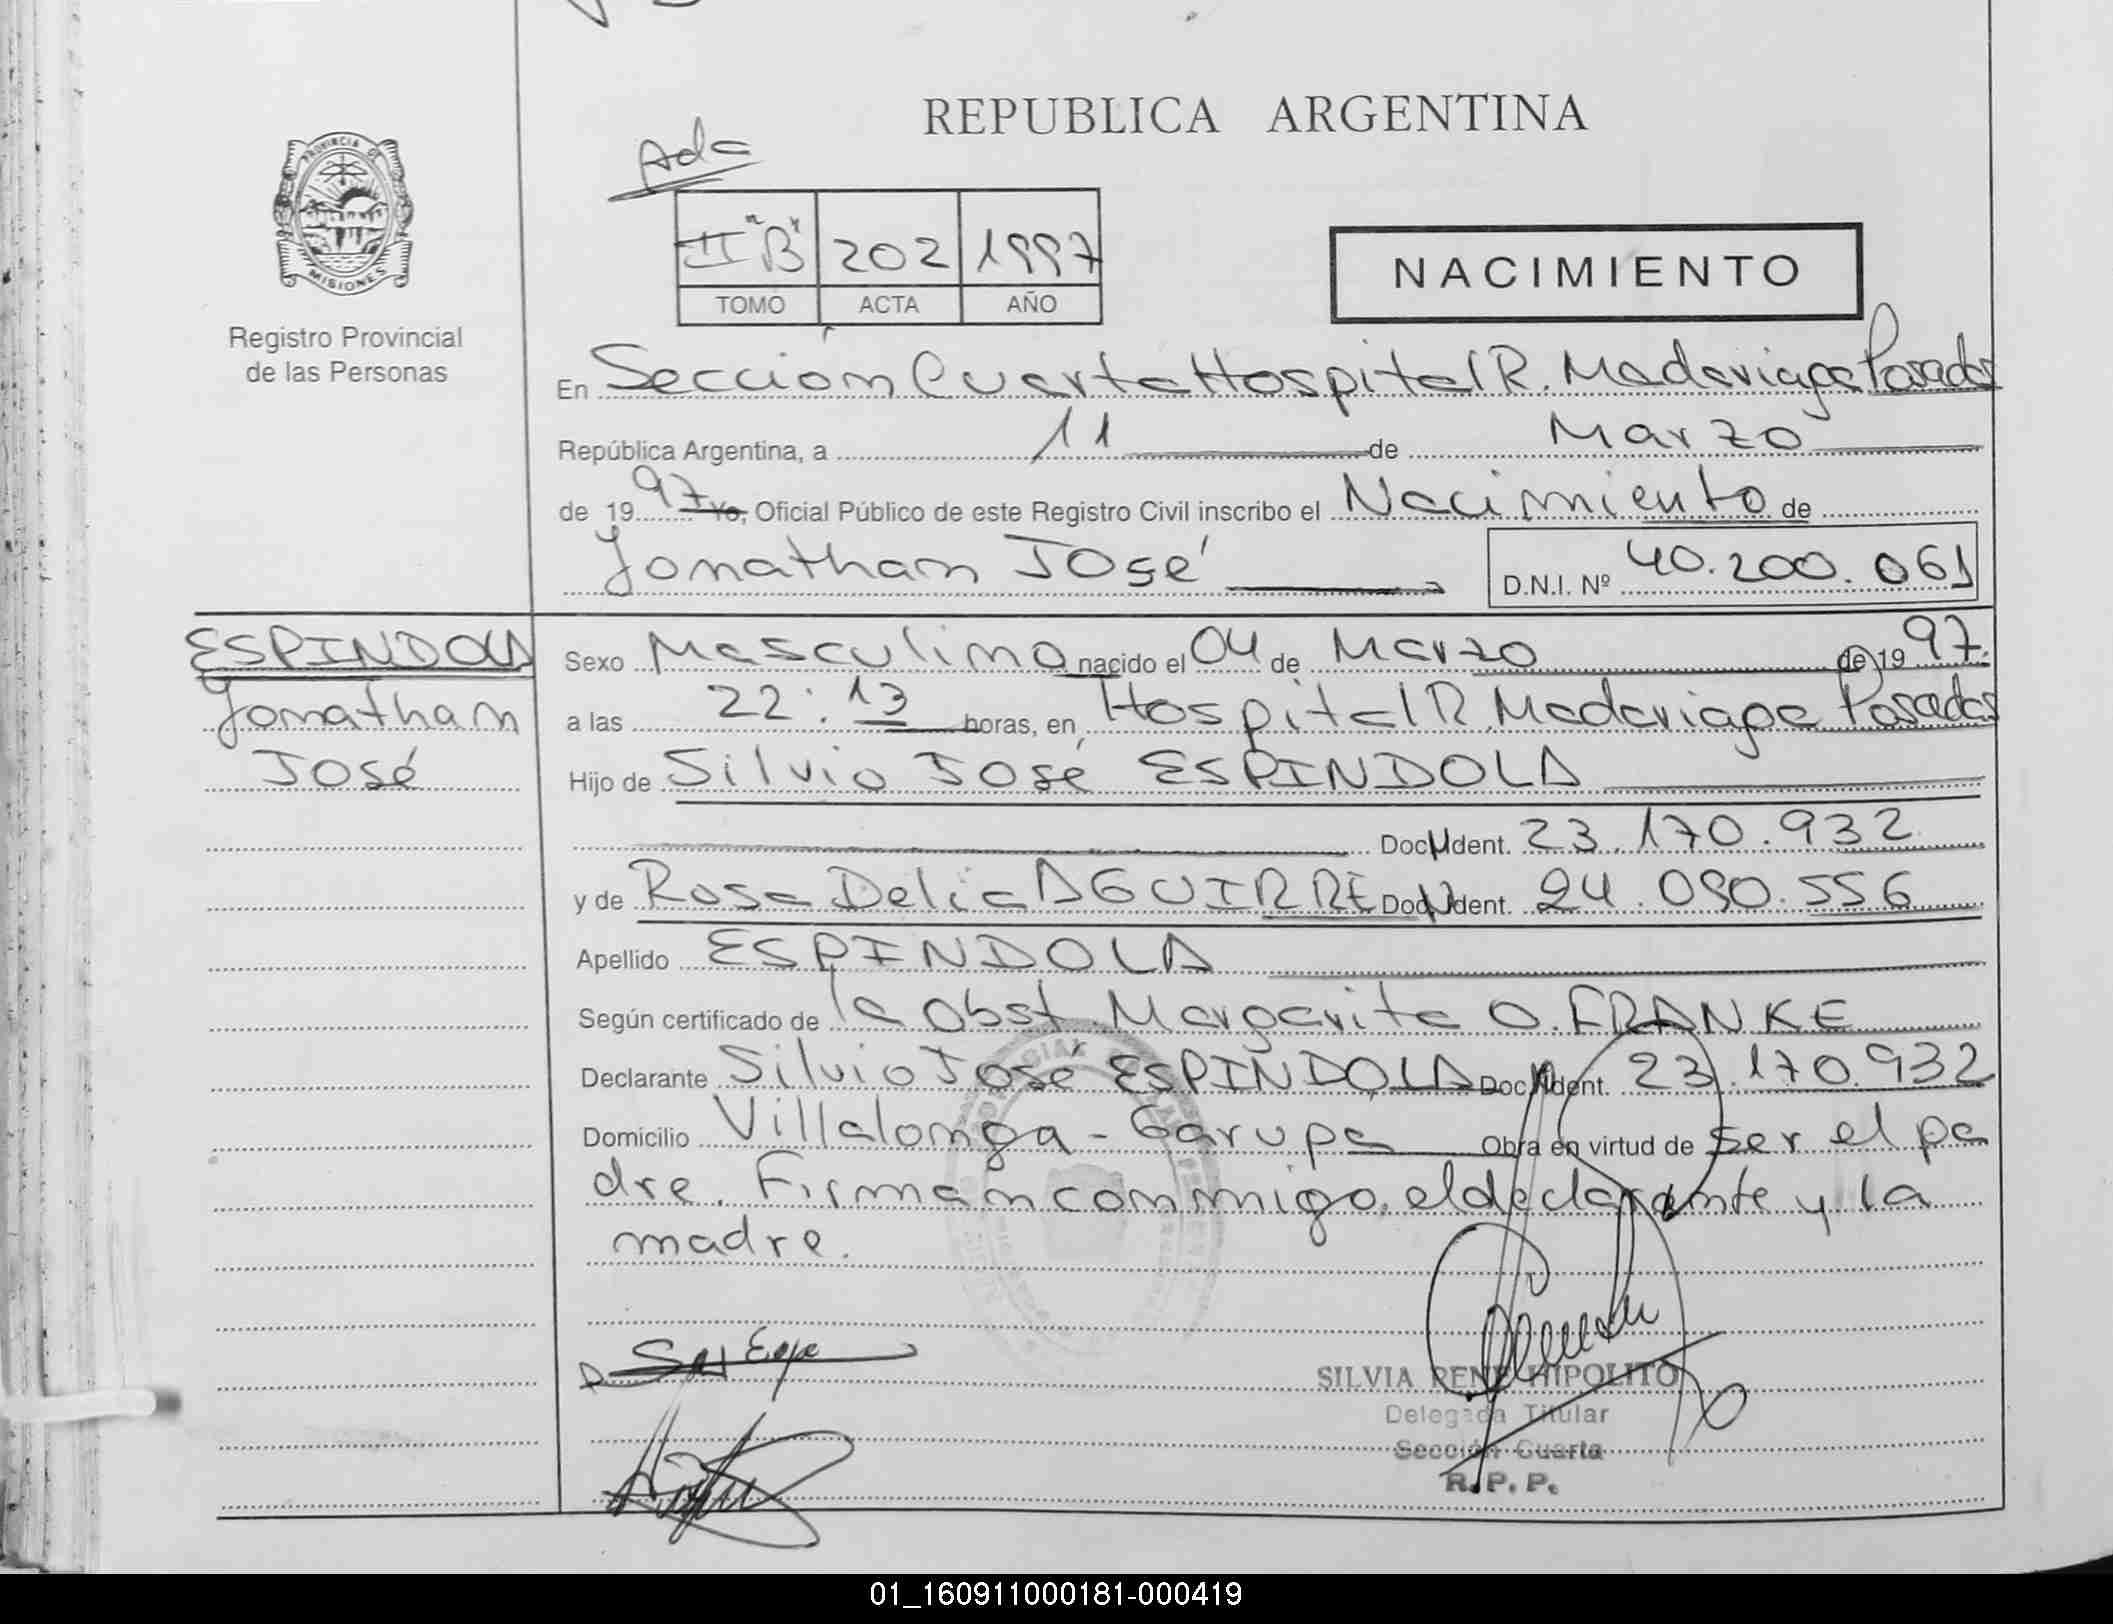 REPUBLICA ARGENTINA
PROVINCIA DE
MISIONES
Registro Provincial
de las Personas
II "B" 202 1997
TOMO ACTA AÑO
NACIMIENTO
En Sección Cuarta Hospital R. Madariaga Posadas
República Argentina, a 11 de Marzo
de 1997 Yo, Oficial Público de este Registro Civil inscribo el Nacimiento de
Jonathan José D.N.I. Nº 40.200.061
ESPINDOLA
Jonathan
José
Sexo Masculino nacido el 04 de Marzo de 1997.
a las 22:13 horas, en Hospital R. Madariaga Posadas
Hijo de Silvio José ESPINDOLA
Doc. Ident. 23.170.932
y de Rosa Delia AGUIRRE Doc. Ident. 24.090.556
Apellido ESPINDOLA
Según certificado de la Obst. Margarita O. FRANKE
Declarante Silvio José ESPINDOLA Doc. Ident. 23.170.932
Domicilio Villalonga - Garupa Obra en virtud de ser el pa
dre. Firman conmigo, el declarante y la
madre.
SILVIA RENE HIPOLITO
Delegada Titular
Sección Cuarta
R. P. P.
01_160911000181-000419